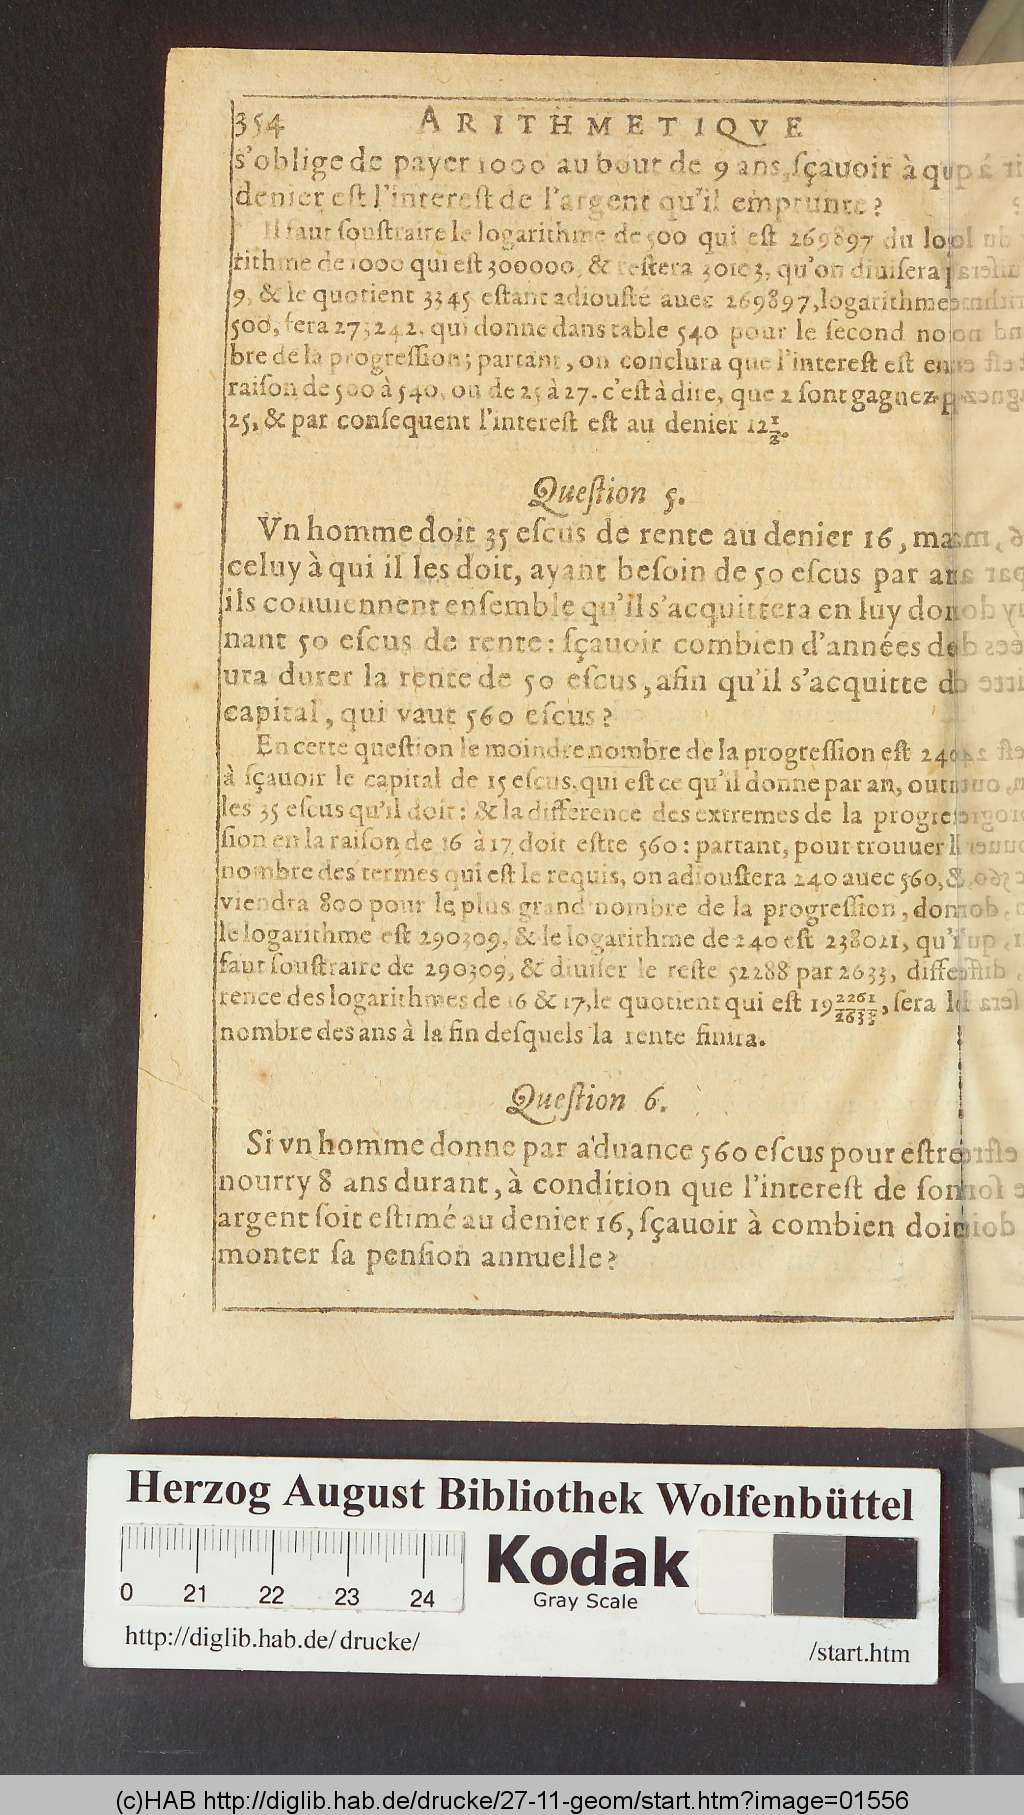 354 ARITHMETIQVE
s'oblige de payer 1000 au bout de 9 ans, sçauoir à
denier est l'interest de l'argent qu'il emprunte?
Il faut soustraire le logarithme de 500 qui est 269897 du
rithme de 1000 qui est 300000, & restera 30103, qu'on diuisera
9, & le quotient 3345 estant adiousté auec 269897, logarithme
500, sera 273242. qui donne dans table 540 pour le second
bre de la progression; partant, on conclura que l'interest est en
raison de 500 à 540, ou de 25 à 27. c'est à dire, que 2 sont gagnez
25, & par consequent l'interest est au denier 12 1/2.
Question 5.
Vn homme doit 35 escus de rente au denier 16, mais
celuy à qui il les doit, ayant besoin de 50 escus par an
ils conuiennent ensemble qu'il s'acquittera en luy don
nant 50 escus de rente: sçauoir combien d'années de
ura durer la rente de 50 escus, afin qu'il s'acquitte
capital, qui vaut 560 escus?
En cette question le moindre nombre de la progression est 240
à sçauoir le capital de 15 escus, qui est ce qu'il donne par an, outre
les 35 escus qu'il doit: & la difference des extremes de la progres
sion en la raison de 16 à 17 doit estre 560: partant, pour trouuer
nombre des termes qui est le requis, on adioustera 240 auec 560, &
viendra 800 pour le plus grand nombre de la progression, dont
le logarithme est 290309, & le logarithme de 240 est 238021, qu'il
faut soustraire de 290309, & diuiser le reste 52288 par 2633, diffe
rence des logarithmes de 16 & 17, le quotient qui est 19 2261/2633, sera
nombre des ans à la fin desquels la rente finira.
Question 6.
Si vn homme donne par aduance 560 escus pour estre
nourry 8 ans durant, à condition que l'interest de son
argent soit estimé au denier 16, sçauoir à combien doit
monter sa pension annuelle?
Herzog August Bibliothek Wolfenbüttel
Kodak
Gray Scale
0 21 22 23 24
http://diglib.hab.de/drucke/
/start.htm
(c)HAB http://diglib.hab.de/drucke/27-11-geom/start.htm?image=01556